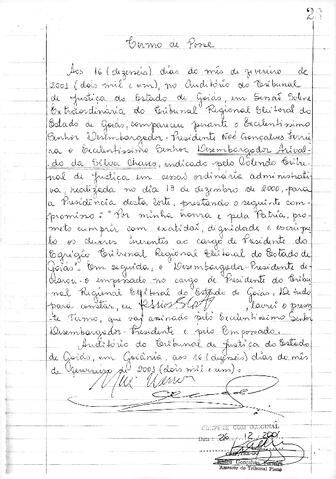 23
Termo de Posse
Aos 16 (dezesseis) dias do mês de fevereiro de
2001 (dois mil e um), no Auditório do Tribunal
de Justiça do Estado de Goiás, em Sessão Solene
Extraordinária do Tribunal Regional Eleitoral do
Estado de Goiás, compareceu perante o Excelentíssimo
Senhor Desembargador-Presidente Noé Gonçalves Ferrei
ra o Excelentíssimo Senhor Desembargador Arival
do da Silva Chaves, indicado pelo Colendo Tribu
nal de Justiça em sessão ordinária administrati
va, realizada no dia 13 de dezembro de 2000, para
a Presidência desta Corte, prestando o seguinte com
promisso: "Por minha honra e pela Pátria, pro
meto cumprir com exatidão, dignidade e escrúpu
lo os deveres inerentes ao cargo de Presidente do
Egrégio Tribunal Regional Eleitoral do Estado de
Goiás". Em seguida, o Desembargador-Presidente de
clarou o empossado no cargo de Presidente do Tribu
nal Regional Eleitoral do Estado de Goiás. De tudo
para constar, eu lavrei o presen
te Termo, que vai assinado pelo Excelentíssimo Senhor
Desembargador-Presidente e pelo Empossado.
Auditório do Tribunal de Justiça do Estado
de Goiás, em Goiânia, aos 16 (dezesseis) dias do mês
de fevereiro de 2001 (dois mil e um).
CONFERE COM ORIGINAL
Data: 26 12 2001
Gonçalves Pereira
Assessor de Tribunal Pleno